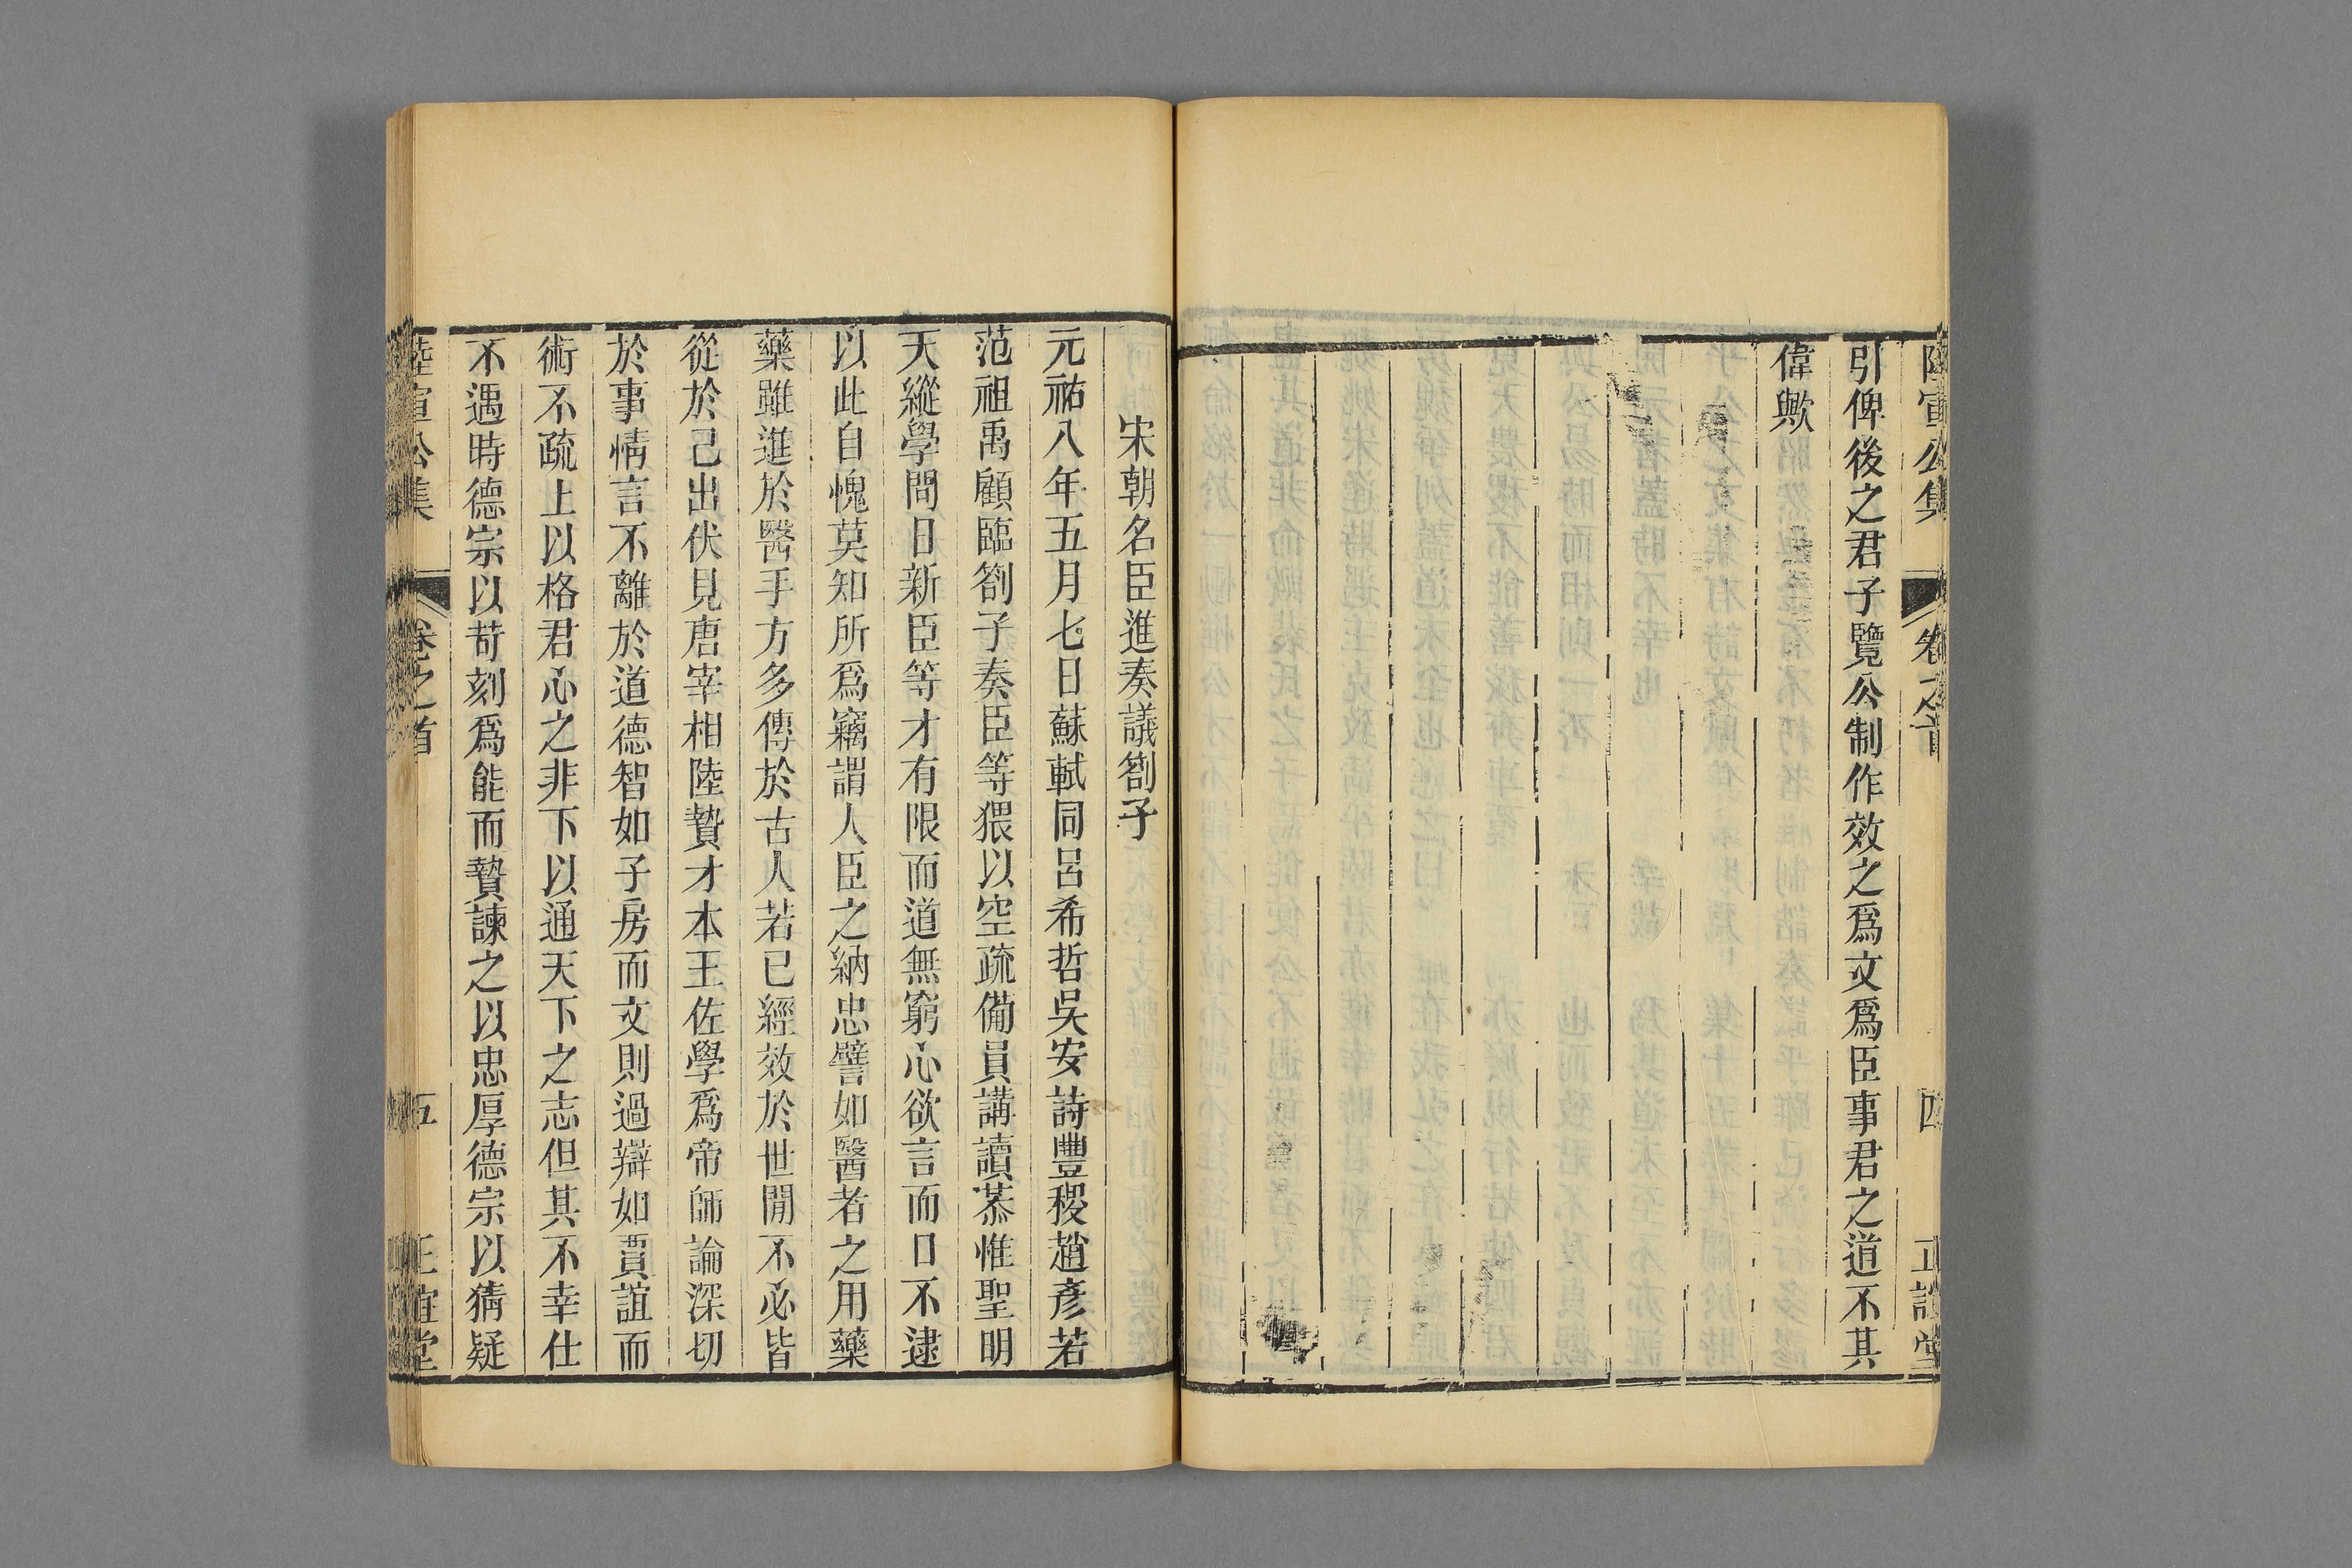 陸宣公集 卷之首 四 正誼堂
引俾後之君子覽公制作效之爲文爲臣事君之道不其
偉歟
宋朝名臣進奏議劄子
元祐八年五月七日蘇軾同呂希哲吳安詩豐稷趙彥若
范祖禹顧臨劄子奏臣等猥以空疏備員講讀恭惟聖明
天縱學問日新臣等才有限而道無窮心欲言而口不逮
以此自愧莫知所爲竊謂人臣之納忠譬如醫者之用藥
藥雖進於醫手方多傳於古人若已經效於世閒不必皆
從於己出伏見唐宰相陸贄才本王佐學爲帝師論深切
於事情言不離於道德智如子房而文則過辯如賈誼而
術不疏上以格君心之非下以通天下之志但其不幸仕
不遇時德宗以苛刻爲能而贄諫之以忠厚德宗以猜疑
陸宣公集 卷之首 五 正誼堂